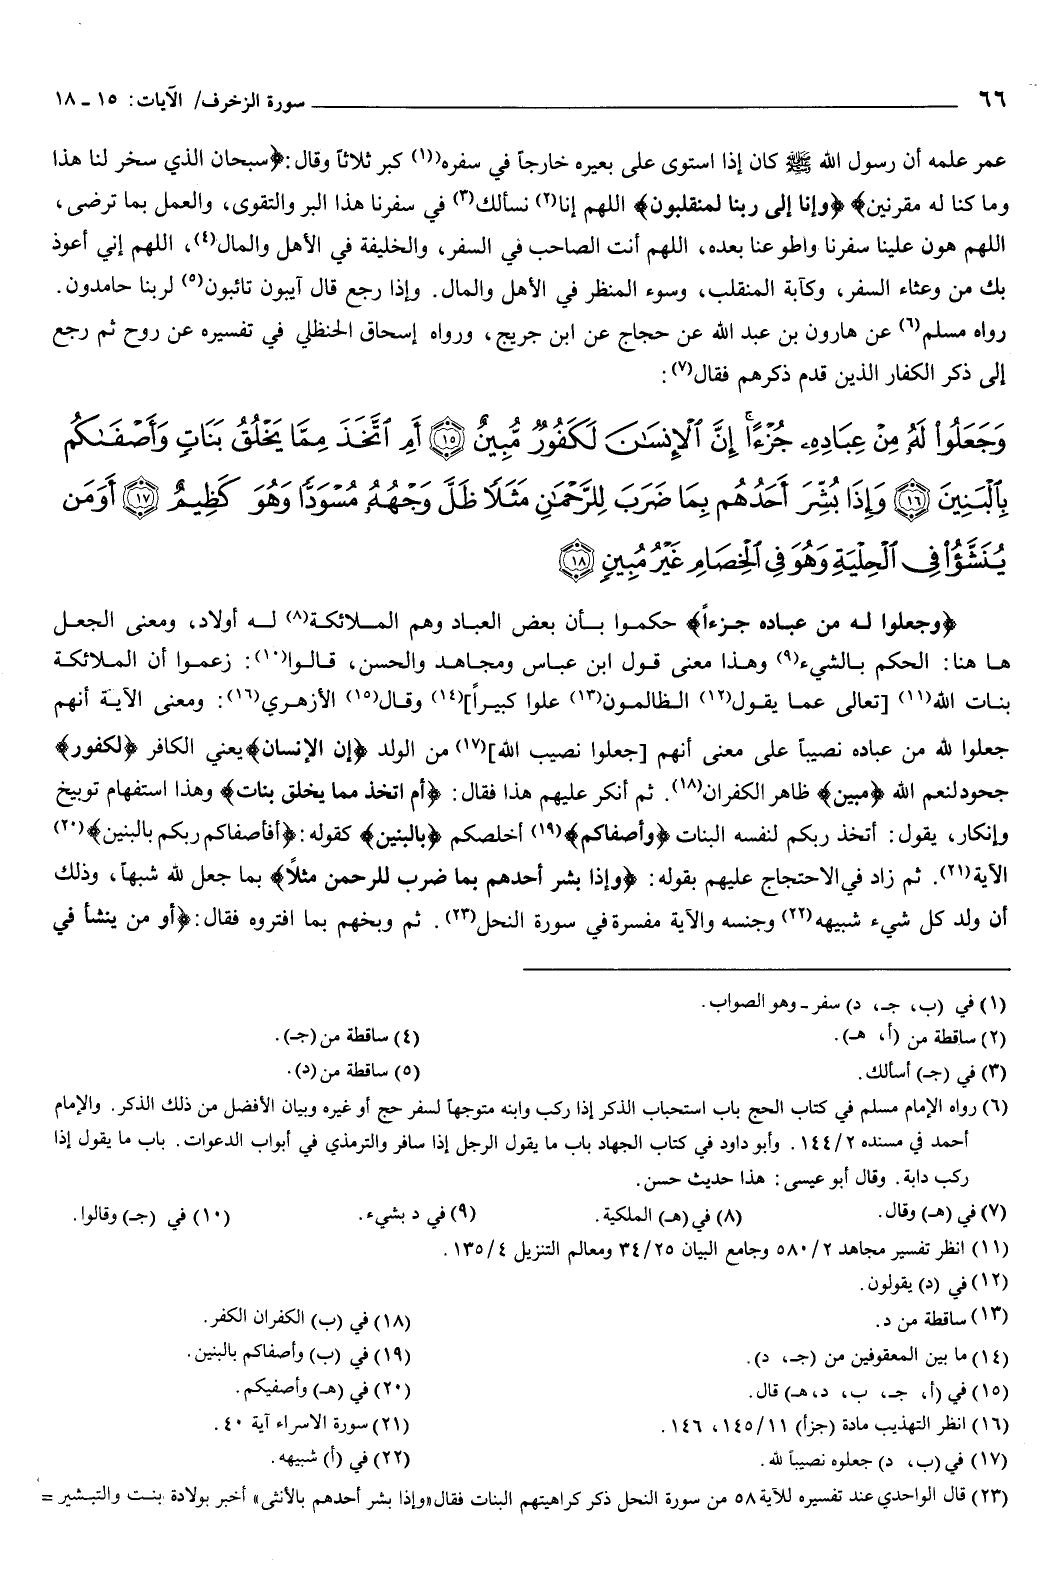 ٦٦ سورة الزخرف/ الآيات: ١٥ ـ ١٨
عمر علمه أن رسول الله ﷺ كان إذا استوى على بعيره خارجاً في سفره(١) كبر ثلاثاً وقال: ﴿سبحان الذي سخر لنا هذا
وما كنا له مقرنين﴾ ﴿وإنا إلى ربنا لمنقلبون﴾ اللهم إنا(٢) نسألك(٣) في سفرنا هذا البر والتقوى، والعمل بما ترضى،
اللهم هون علينا سفرنا واطو عنا بعده، اللهم أنت الصاحب في السفر، والخليفة في الأهل والمال(٤)، اللهم إني أعوذ
بك من وعثاء السفر، وكآبة المنقلب، وسوء المنظر في الأهل والمال. وإذا رجع قال آيبون تائبون(٥) لربنا حامدون.
رواه مسلم(٦) عن هارون بن عبد الله عن حجاج عن ابن جريج، ورواه إسحاق الحنظلي في تفسيره عن روح ثم رجع
إلى ذكر الكفار الذين قدم ذكرهم فقال(٧):
وَجَعَلُوا۟ لَهُۥ مِنْ عِبَادِهِۦ جُزْءًا ۚ إِنَّ ٱلْإِنسَـٰنَ لَكَفُورٌ مُّبِينٌ ١٥ أَمِ ٱتَّخَذَ مِمَّا يَخْلُقُ بَنَاتٍ وَأَصْفَىٰكُم
بِٱلْبَنِينَ ١٦ وَإِذَا بُشِّرَ أَحَدُهُم بِمَا ضَرَبَ لِلرَّحْمَـٰنِ مَثَلًا ظَلَّ وَجْهُهُۥ مُسْوَدًّا وَهُوَ كَظِيمٌ ١٧ أَوَمَن
يُنَشَّؤُا۟ فِى ٱلْحِلْيَةِ وَهُوَ فِى ٱلْخِصَامِ غَيْرُ مُبِينٍ ١٨
﴿وجعلوا له من عباده جزءاً﴾ حكموا بأن بعض العباد وهم الملائكة(٨) له أولاد، ومعنى الجعل
ها هنا: الحكم بالشيء(٩) وهذا معنى قول ابن عباس ومجاهد والحسن، قالوا(١٠): زعموا أن الملائكة
بنات الله(١١) [تعالى عما يقول(١٢) الظالمون(١٣) علوا كبيراً](١٤) وقال(١٥) الأزهري(١٦): ومعنى الآية أنهم
جعلوا لله من عباده نصيباً على معنى أنهم [جعلوا نصيب الله](١٧) من الولد ﴿إن الإنسان﴾ يعني الكافر ﴿لكفور﴾
جحود لنعم الله ﴿مبين﴾ ظاهر الكفران(١٨). ثم أنكر عليهم هذا فقال: ﴿أم اتخذ مما يخلق بنات﴾ وهذا استفهام توبيخ
وإنكار، يقول: أتخذ ربكم لنفسه البنات ﴿وأصفاكم﴾(١٩) أخلصكم ﴿بالبنين﴾ كقوله: ﴿أفأصفاكم ربكم بالبنين﴾(٢٠)
الآية(٢١). ثم زاد في الاحتجاج عليهم بقوله: ﴿وإذا بشر أحدهم بما ضرب للرحمن مثلاً﴾ بما جعل لله شبهاً، وذلك
أن ولد كل شيء شبيهه(٢٢) وجنسه والآية مفسرة في سورة النحل(٢٣). ثم وبخهم بما افتروه فقال: ﴿أو من ينشأ في
(١) في (ب، جـ، د) سفر ـ وهو الصواب.
(٢) ساقطة من (أ، هـ). (٤) ساقطة من (جـ).
(٣) في (جـ) أسألك. (٥) ساقطة من (د).
(٦) رواه الإمام مسلم في كتاب الحج باب استحباب الذكر إذا ركب وابنه متوجهاً لسفر حج أو غيره وبيان الأفضل من ذلك الذكر. والإمام
أحمد في مسنده ١٤٤/٢. وأبو داود في كتاب الجهاد باب ما يقول الرجل إذا سافر والترمذي في أبواب الدعوات. باب ما يقول إذا
ركب دابة. وقال أبو عيسى: هذا حديث حسن.
(٧) في (هـ) وقال. (٨) في (هـ) الملكية. (٩) في د بشيء. (١٠) في (جـ) وقالوا.
(١١) انظر تفسير مجاهد ٥٨٠/٢ وجامع البيان ٣٤/٢٥ ومعالم التنزيل ١٣٥/٤.
(١٢) في (د) يقولون.
(١٣) ساقطة من د. (١٨) في (ب) الكفران الكفر.
(١٤) ما بين المعقوفين من (جـ، د). (١٩) في (ب) وأصفاكم بالبنين.
(١٥) في (أ، جـ، ب، د، هـ) قال. (٢٠) في (هـ) وأصفيكم.
(١٦) انظر التهذيب مادة (جزأ) ١٤٥/١١، ١٤٦. (٢١) سورة الاسراء آية ٤٠.
(١٧) في (ب، د) جعلوه نصيباً لله. (٢٢) في (أ) شبيهه.
(٢٣) قال الواحدي عند تفسيره للآية ٥٨ من سورة النحل ذكر كراهيتهم البنات فقال «وإذا بشر أحدهم بالأنثى» أخبر بولادة بنت والتبشير =